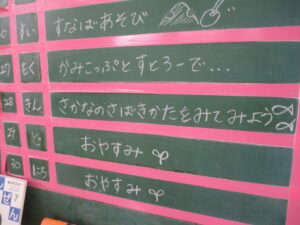 すい すなばあそび
27 もく かみこっぷとすとろーで...
28 きん さかなのさばきかたをみてみよう
29 ど おやすみ
30 にち おやすみ
ぜん